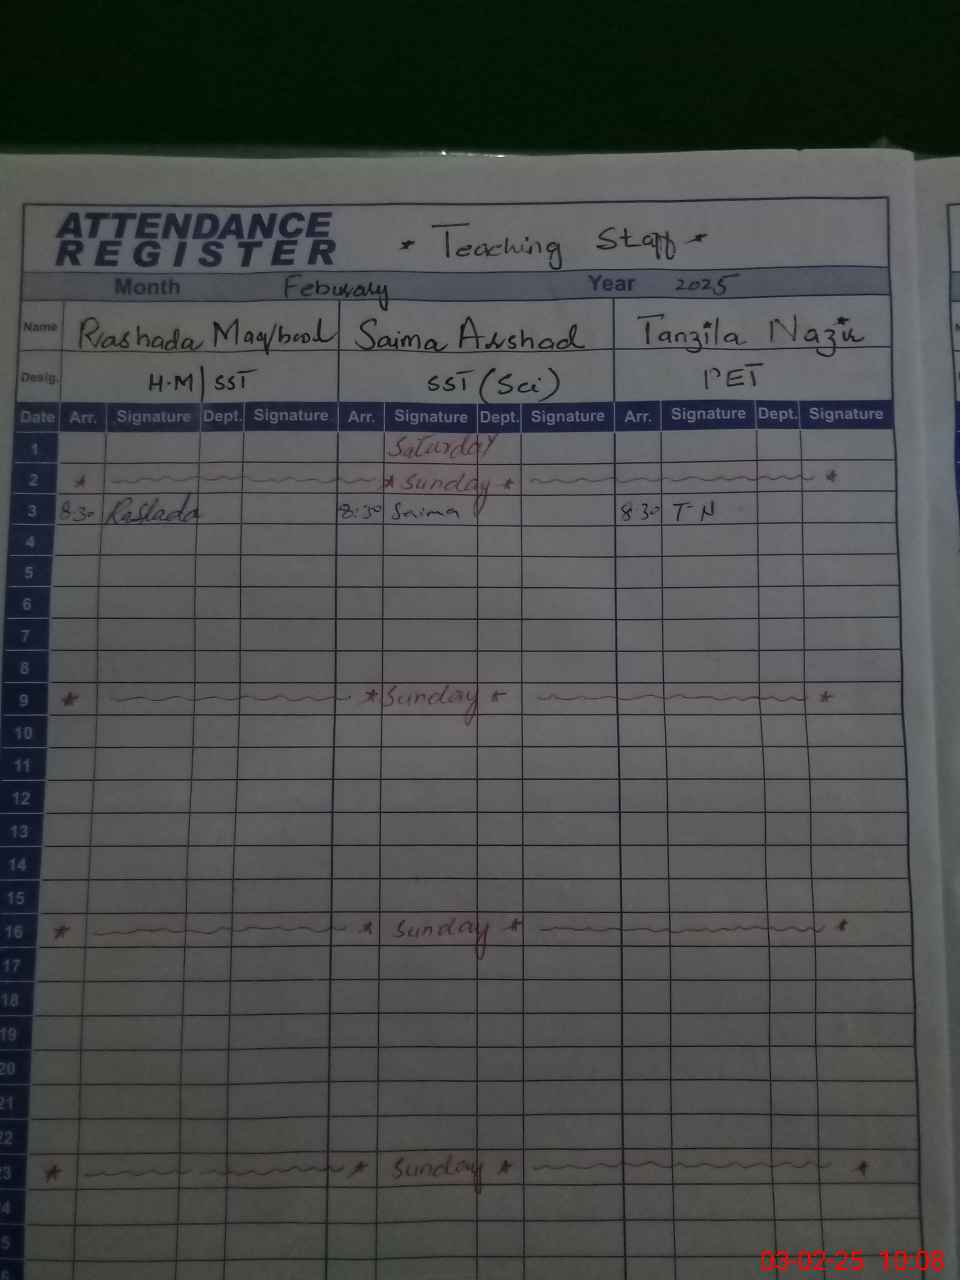 ATTENDANCE
REGISTER
* Teaching Staff *
Month Feburary Year 2025
Name Rashada Maqbool Saima Arshad Tanzila Nazir
Desig. H.M|SST SST (Sci) PET
Date Arr. Signature Dept. Signature Arr. Signature Dept. Signature Arr. Signature Dept. Signature
1 Saturday
2 * * Sunday * *
3 8:30 Rashada 8:30 Saima 8:30 T-N
4
5
6
7
8
9 * * Sunday * *
10
11
12
13
14
15
16 * * Sunday * *
17
18
19
20
21
22
23 * * Sunday * *
24
25
03-02-25 10:08